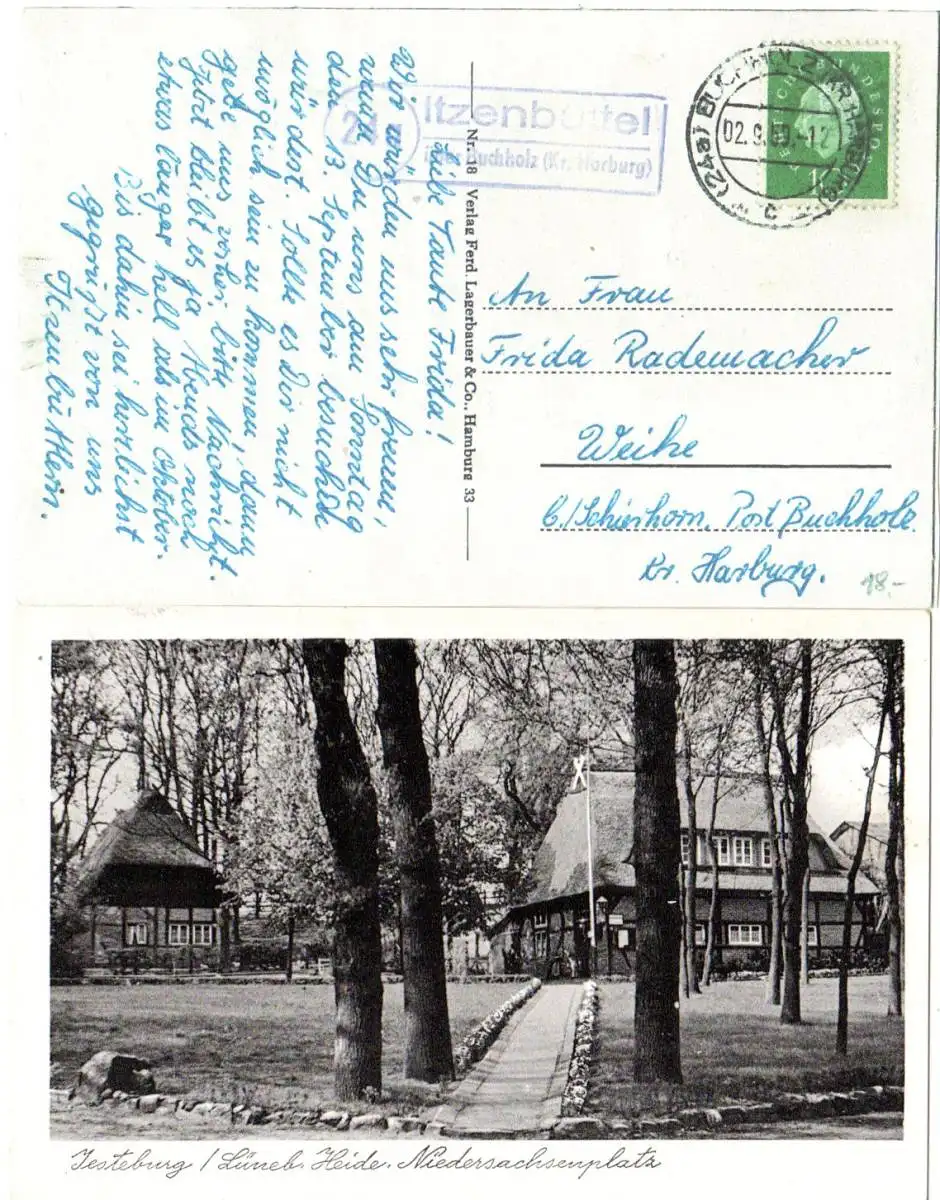 24a
Itzenbüttel
über Buchholz (Kr. Harburg)
(24a) BUCHHOLZ (KR HARBURG)
02.9.59-12
c
DEUTSCHE BUNDESPOST
10
Liebe Tante Frida!
Wir würden uns sehr freuen,
wenn Du uns am Sonntag
den 13. September besuchen
würdest. Sollte es Dir nicht
möglich sein zu kommen, dann
gebe uns vorher bitte Nachricht.
Jetzt bleibt es ja Abends noch
etwas länger hell als im Oktober.
Bis dahin sei herzlichst
gegrüßt von uns
Itzenbüttlern.
Nr. 18 Verlag Ferd. Lagerbauer & Co., Hamburg 33
An Frau
Frida Rademacher
Weihe
b./Schierhorn, Post Buchholz
Kr. Harburg.
18.-
Jesteburg / Lüneb. Heide. Niedersachsenplatz